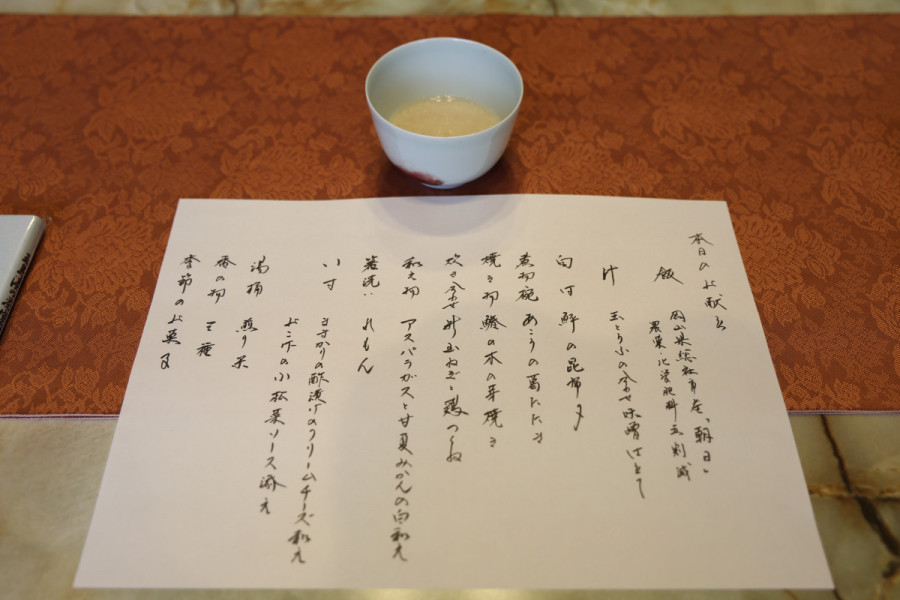 本日のお献立
飯 岡山県総社市産、朝日
農薬・化学肥料五割減
汁 玉とり小の合わせ味噌仕立て
向付 鮮の昆布〆
煮物碗 あこうの葛たたき
焼き物 鰆の木の芽焼き
炊き合わせ 新玉ねぎと鶏つくね
和え物 アスパラガスと甘夏みかんの白和え
箸洗い れもん
八寸 さより の酢漬けのクリームチーズ和え
小松菜ソース添え
湯桶 煎り米
香の物 三種
季節のお菓子